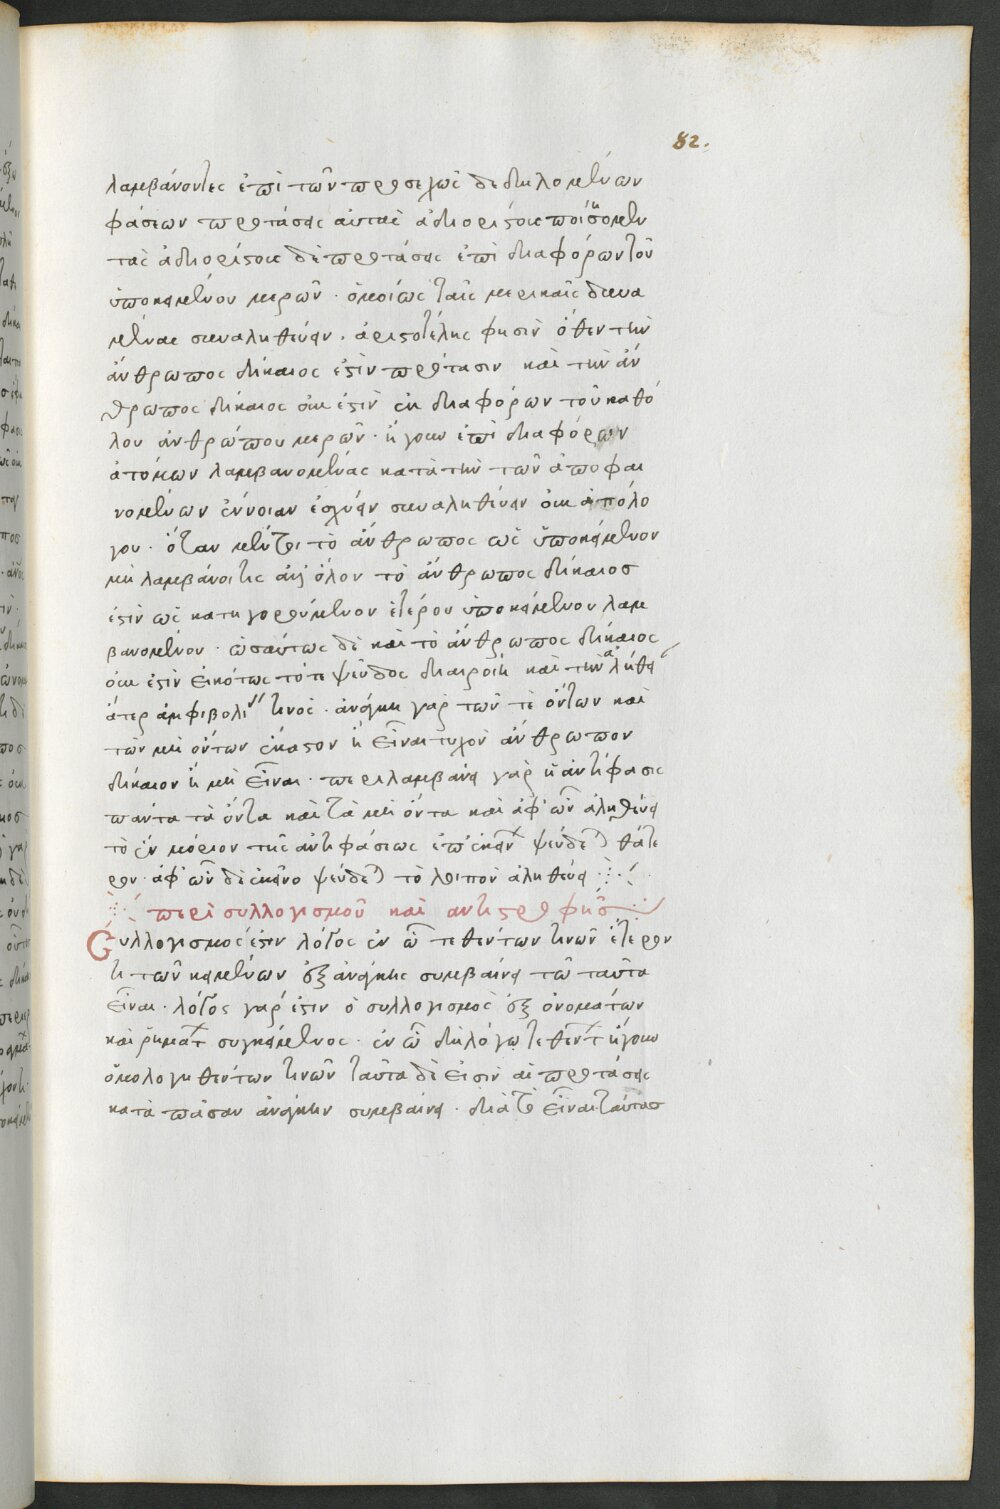 82.
λαμβάνοντες ἐπὶ τῶν προσεχῶς δεδηλομένων
φάσεων προτάσεις αὐταῖς ἀδιορίστους ποιήσομεν
τὰς ἀδιορίστους δὲ προτάσεις ἐπὶ διαφόρων τοῦ
ὑποκειμένου μερῶν · ὁμοίως ταῖς μερικαῖς δυνα
μένας συναληθεύειν · ἀριστοτέλης φησὶν ὅθεν τὴν
ἄνθρωπος δίκαιος ἐστὶν πρότασιν καὶ τὴν ἄν
θρωπος δίκαιος οὐκ ἐστὶν ἐκ διαφόρων τοῦ καθό
λου ἀνθρώπου μερῶν · ἤγουν ἐπὶ διαφόρων
ἀτόμων λαμβανομένας κατὰ τὴν τῶν ἀποφαι
νομένων ἔννοιαν ἐοχύειν συναληθεύειν οὐκ ἀπόλο
γου · ὅταν μέντοι τὸ ἄνθρωπος ὡς ὑποκείμενον
μὴ λαμβάνοιτες ἀλλ' ὅλον τὸ ἄνθρωπος δίκαιος
ἐστὶν ὡς κατηγορούμενον ἑτέρου ὑποκειμένου λαμ
βανομένου · ὡσαύτως δὲ καὶ τὸ ἄνθρωπος δίκαιος
οὐκ ἐστὶν εἰκότως τότε ψεῦδος διαιροίη καὶ τὴν ἀλήθει
άτερ ἀμφιβολί τινός · ἀνάγκη γὰρ τῶν τὲ ὄντων καὶ
τῶν μὴ ὄντων ἕκαστον ἢ εἶναι τυχὸν ἄνθρωπον
δίκαιον ἢ μὴ εἶναι · περιλαμβάνει γὰρ ἡ ἀντίφασις
πάντα τὰ ὄντα καὶ τὰ μὴ ὄντα καὶ ἀφ' ὧν ἀληθεύει
τὸ ἓν μόριον τῆς ἀντιφάσεως ἐπ' ἐκείνων ψεύδεται θάτε
ρον · ἀφ' ὧν δὲ ἐκεῖνο ψεύδεται τὸ λοιπὸν ἀληθεύει
περὶ συλλογισμοῦ καὶ αντιστροφῆς
Συλλογισμός ἐστιν λόγος ἐν ᾧ τεθέντων τινῶν ἕτερον
τι τῶν κειμένων ἐξ ἀνάγκης συμβαίνει τῷ ταῦτα
εἶναι · λόγος γάρ ἐστιν ὁ συλλογισμὸς ἐξ ὀνομάτων
καὶ ῥημάτων συγκείμενος · ἐν ᾧ δὴ λόγω τεθέντων ἤγουν
ὁμολογηθέντων τινῶν ταῦτα δὲ εἰσὶν αἱ προτάσεις
κατὰ πᾶσαν ἀνάγκην συμβαίνει · διὰ τὸ εἶναι ταύτας